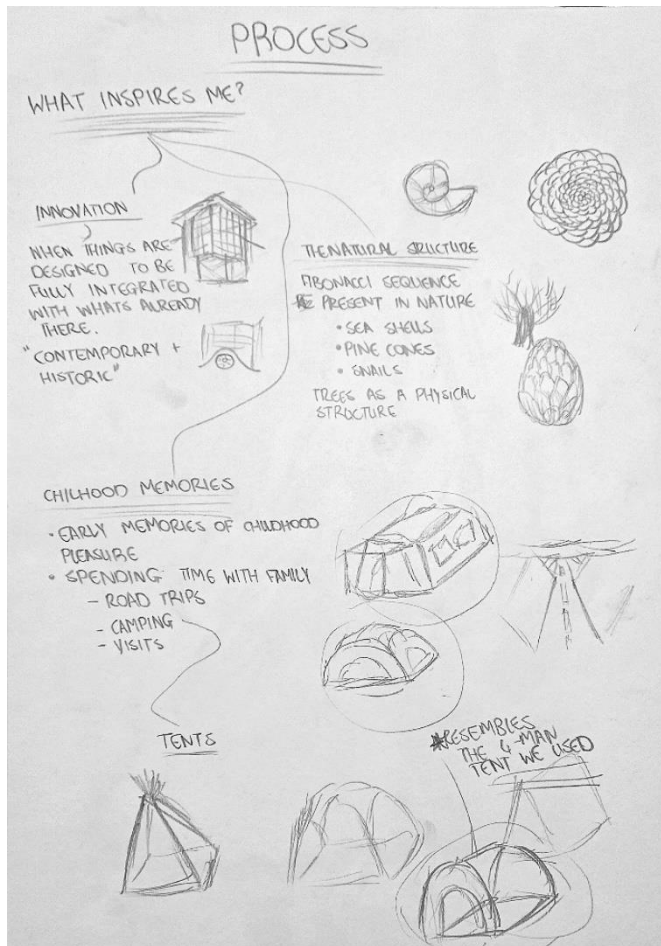 PROCESS
WHAT INSPIRES ME?
INNOVATION
WHEN THINGS ARE
DESIGNED TO BE
FULLY INTEGRATED
WITH WHATS ALREADY
THERE.
"CONTEMPORARY +
HISTORIC"
THE NATURAL STRUCTURE
FIBONACCI SEQUENCE
PRESENT IN NATURE
• SEA SHELLS
• PINE CONES
• SNAILS
TREES AS A PHYSICAL
STRUCTURE
CHILHOOD MEMORIES
• EARLY MEMORIES OF CHILDHOOD
PLEASURE
• SPENDING TIME WITH FAMILY
- ROAD TRIPS
- CAMPING
- VISITS
TENTS
RESEMBLES
THE 4-MAN
TENT WE USED